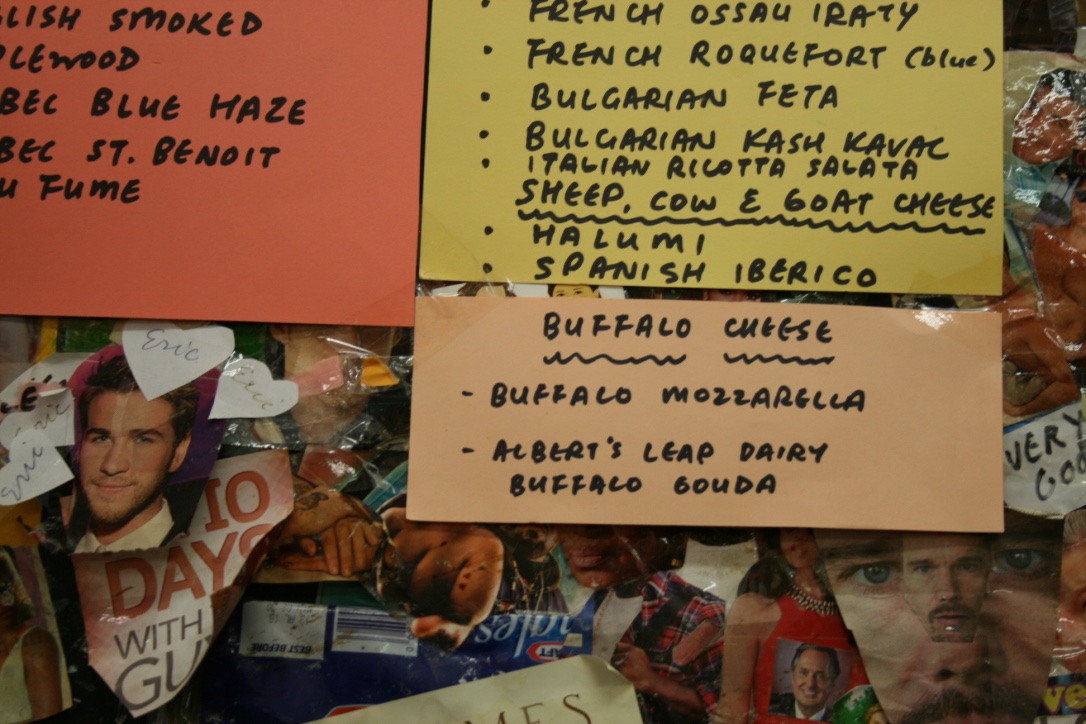 GLISH SMOKED
PLEWOOD
BEC BLUE HAZE
BEC ST. BENOIT
U FUME
• FRENCH OSSAU IRATY
• FRENCH ROQUEFORT (blue)
• BULGARIAN FETA
• BULGARIAN KASH KAVAC
• ITALIAN RICOTTA SALATA
SHEEP, COW & GOAT CHEESE
• HALUMI
• SPANISH IBERICO
BUFFALO CHEESE
- BUFFALO MOZZARELLA
- ALBERT'S LEAP DAIRY
BUFFALO GOUDA
Eric
Eric
Eric
LE'S
10
DAYS
WITH
GU
VERY
GO
BEST BEFORE
gles
MES